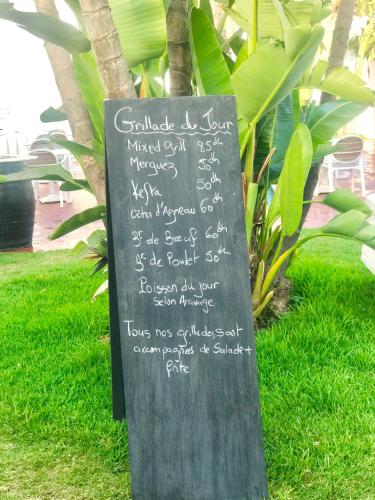 Grillade du Jour
Mixed Grill 85dh
Merguez 50dh
Kefta 50dh
Côtes d'Agneau 60dh
Bc de Bœuf 60dh
Bc de Poulet 50dh
Poisson du jour
Selon Arrivage
Tous nos grillades sont
accompagnées de Salade +
frite